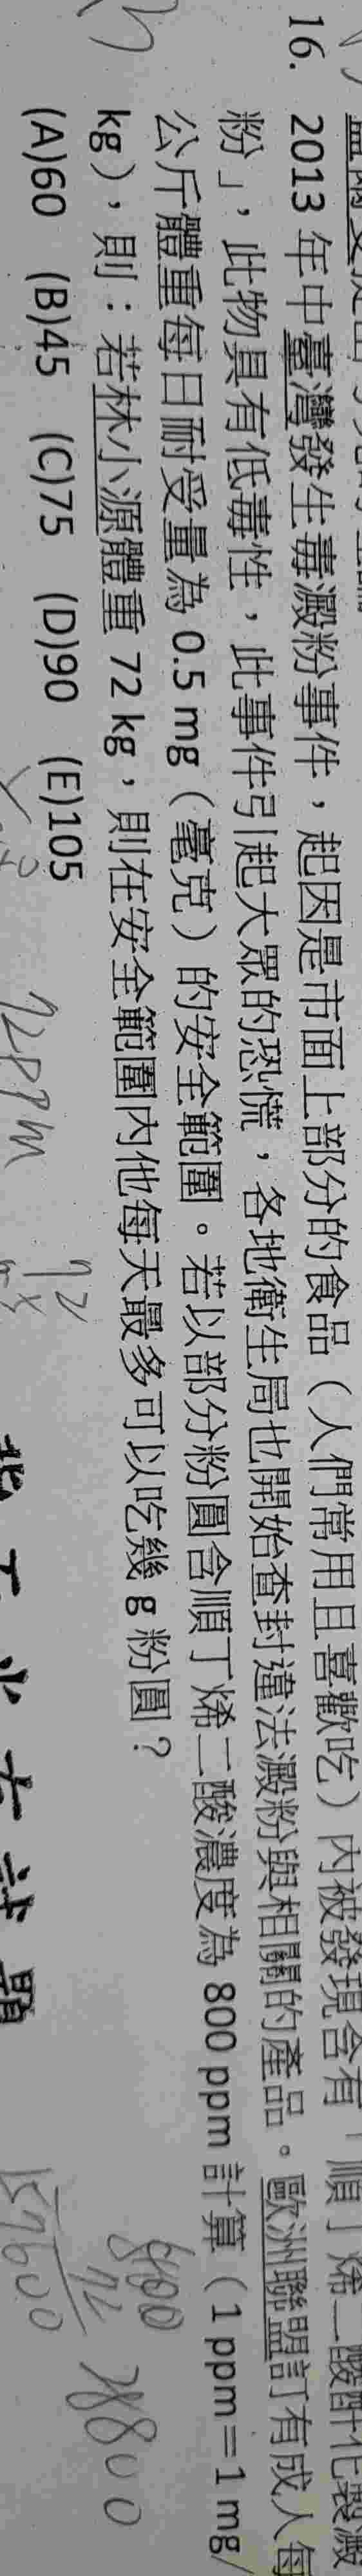 16. 2013 年中臺灣發生毒澱粉事件，起因是市面上部分的食品（人們常用且喜歡吃）內被發現含有「順丁烯二酸酐化製澱
粉」，此物具有低毒性，此事件引起大眾的恐慌，各地衛生局也開始查封違法澱粉與相關的產品。歐洲聯盟訂有成人每
公斤體重每日耐受量為 0.5 mg（毫克）的安全範圍。若以部分粉圓含順丁烯二酸濃度為 800 ppm 計算（1 ppm＝1 mg/
kg），則：若林小源體重 72 kg，則在安全範圍內他每天最多可以吃幾 g 粉圓？
(A)60 (B)45 (C)75 (D)90 (E)105
72ppm
72
800
72
28800
57600